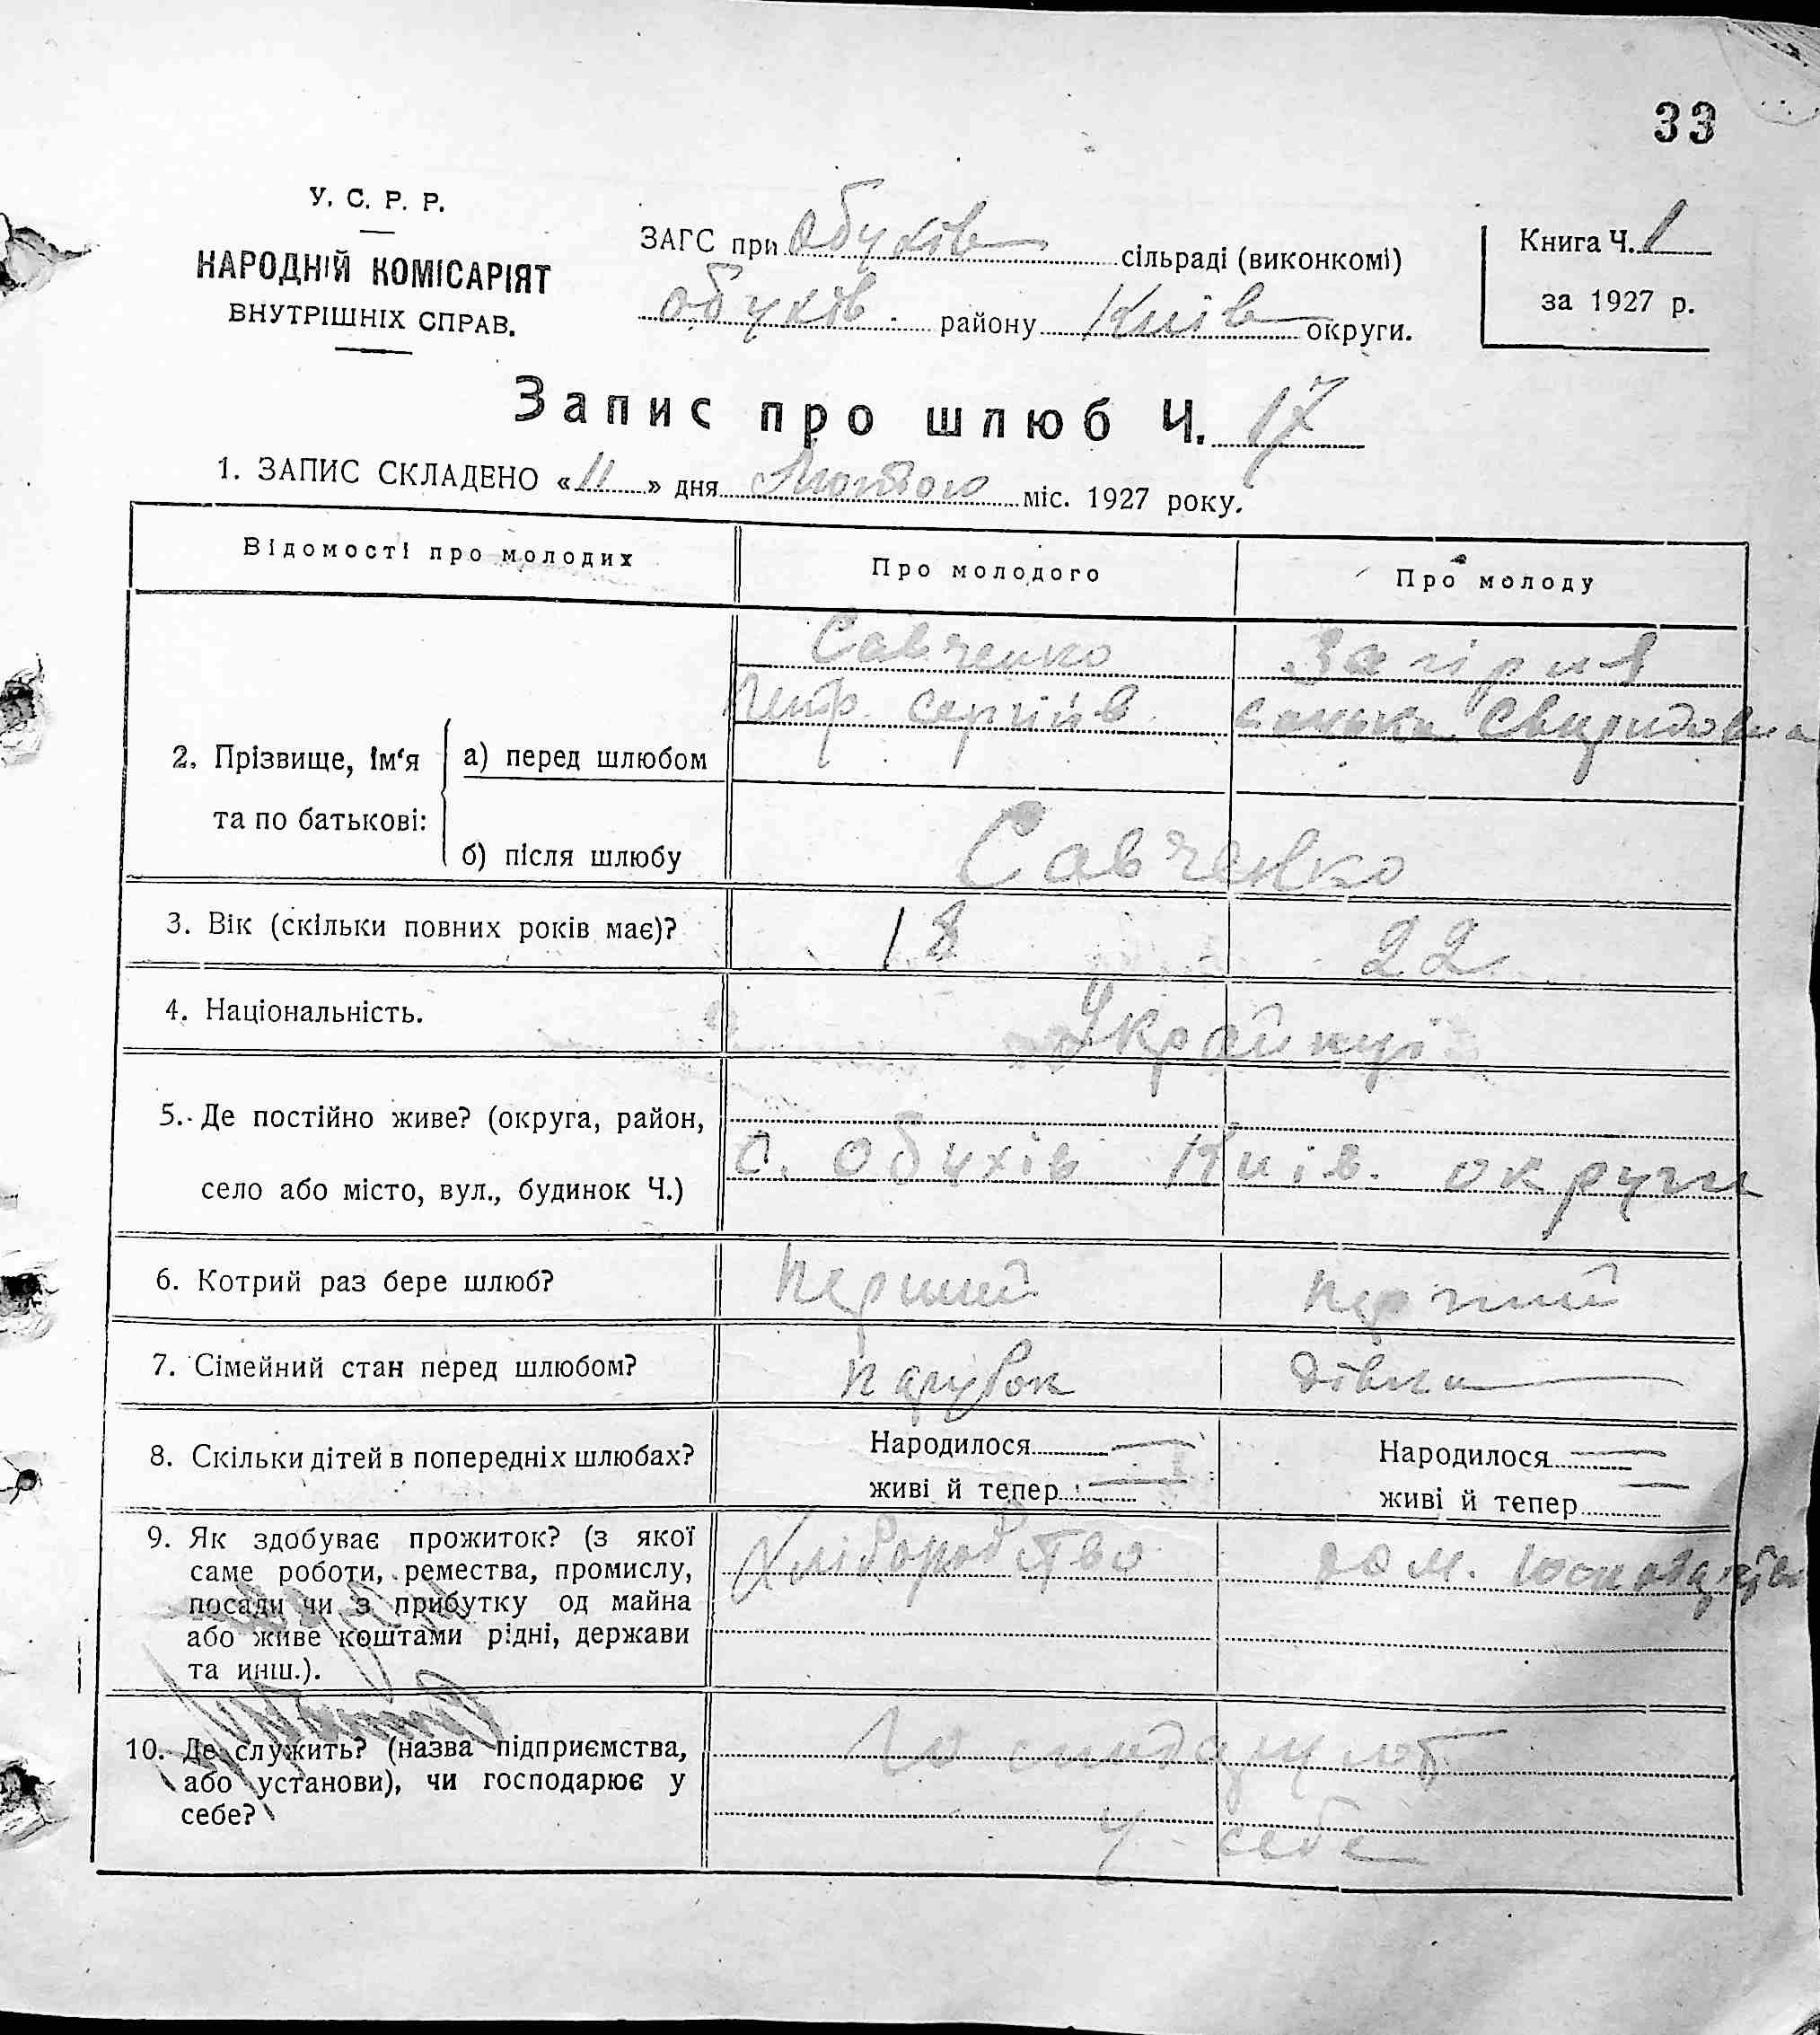 33
У. С. Р. Р.
НАРОДНІЙ КОМІСАРІЯТ
ВНУТРІШНІХ СПРАВ.
ЗАГС при Обухів сільраді (виконкомі)
Обухів. району Київ округи.
Книга Ч. 1
за 1927 р.
Запис про шлюб Ч. 17
1. ЗАПИС СКЛАДЕНО «11» дня Лютого міс. 1927 року.
Відомості про молодих Про молодого Про молоду
2. Прізвище, ім‘я та по батькові:
а) перед шлюбом
Савченко Загірня
Петр. Сергіїв Санька Свиридовна
б) після шлюбу Савченко
3. Вік (скільки повних років має)? 18 22
4. Національність. Українці
5. Де постійно живе? (округа, район,
село або місто, вул., будинок Ч.)
с. Обухів Київ. округи
6. Котрий раз бере шлюб? перший перший
7. Сімейний стан перед шлюбом? парубок дівка
8. Скільки дітей в попередніх шлюбах? Народилося — Народилося —
живі й тепер — живі й тепер —
9. Як здобуває прожиток? (з якої
саме роботи, ремества, промислу,
посади чи з прибутку од майна
або живе коштами рідні, держави
та инш.).
Хліборобство дом.
10. Де служить? (назва підприємства,
або установи), чи господарює у
себе?
Господарюют
у себе